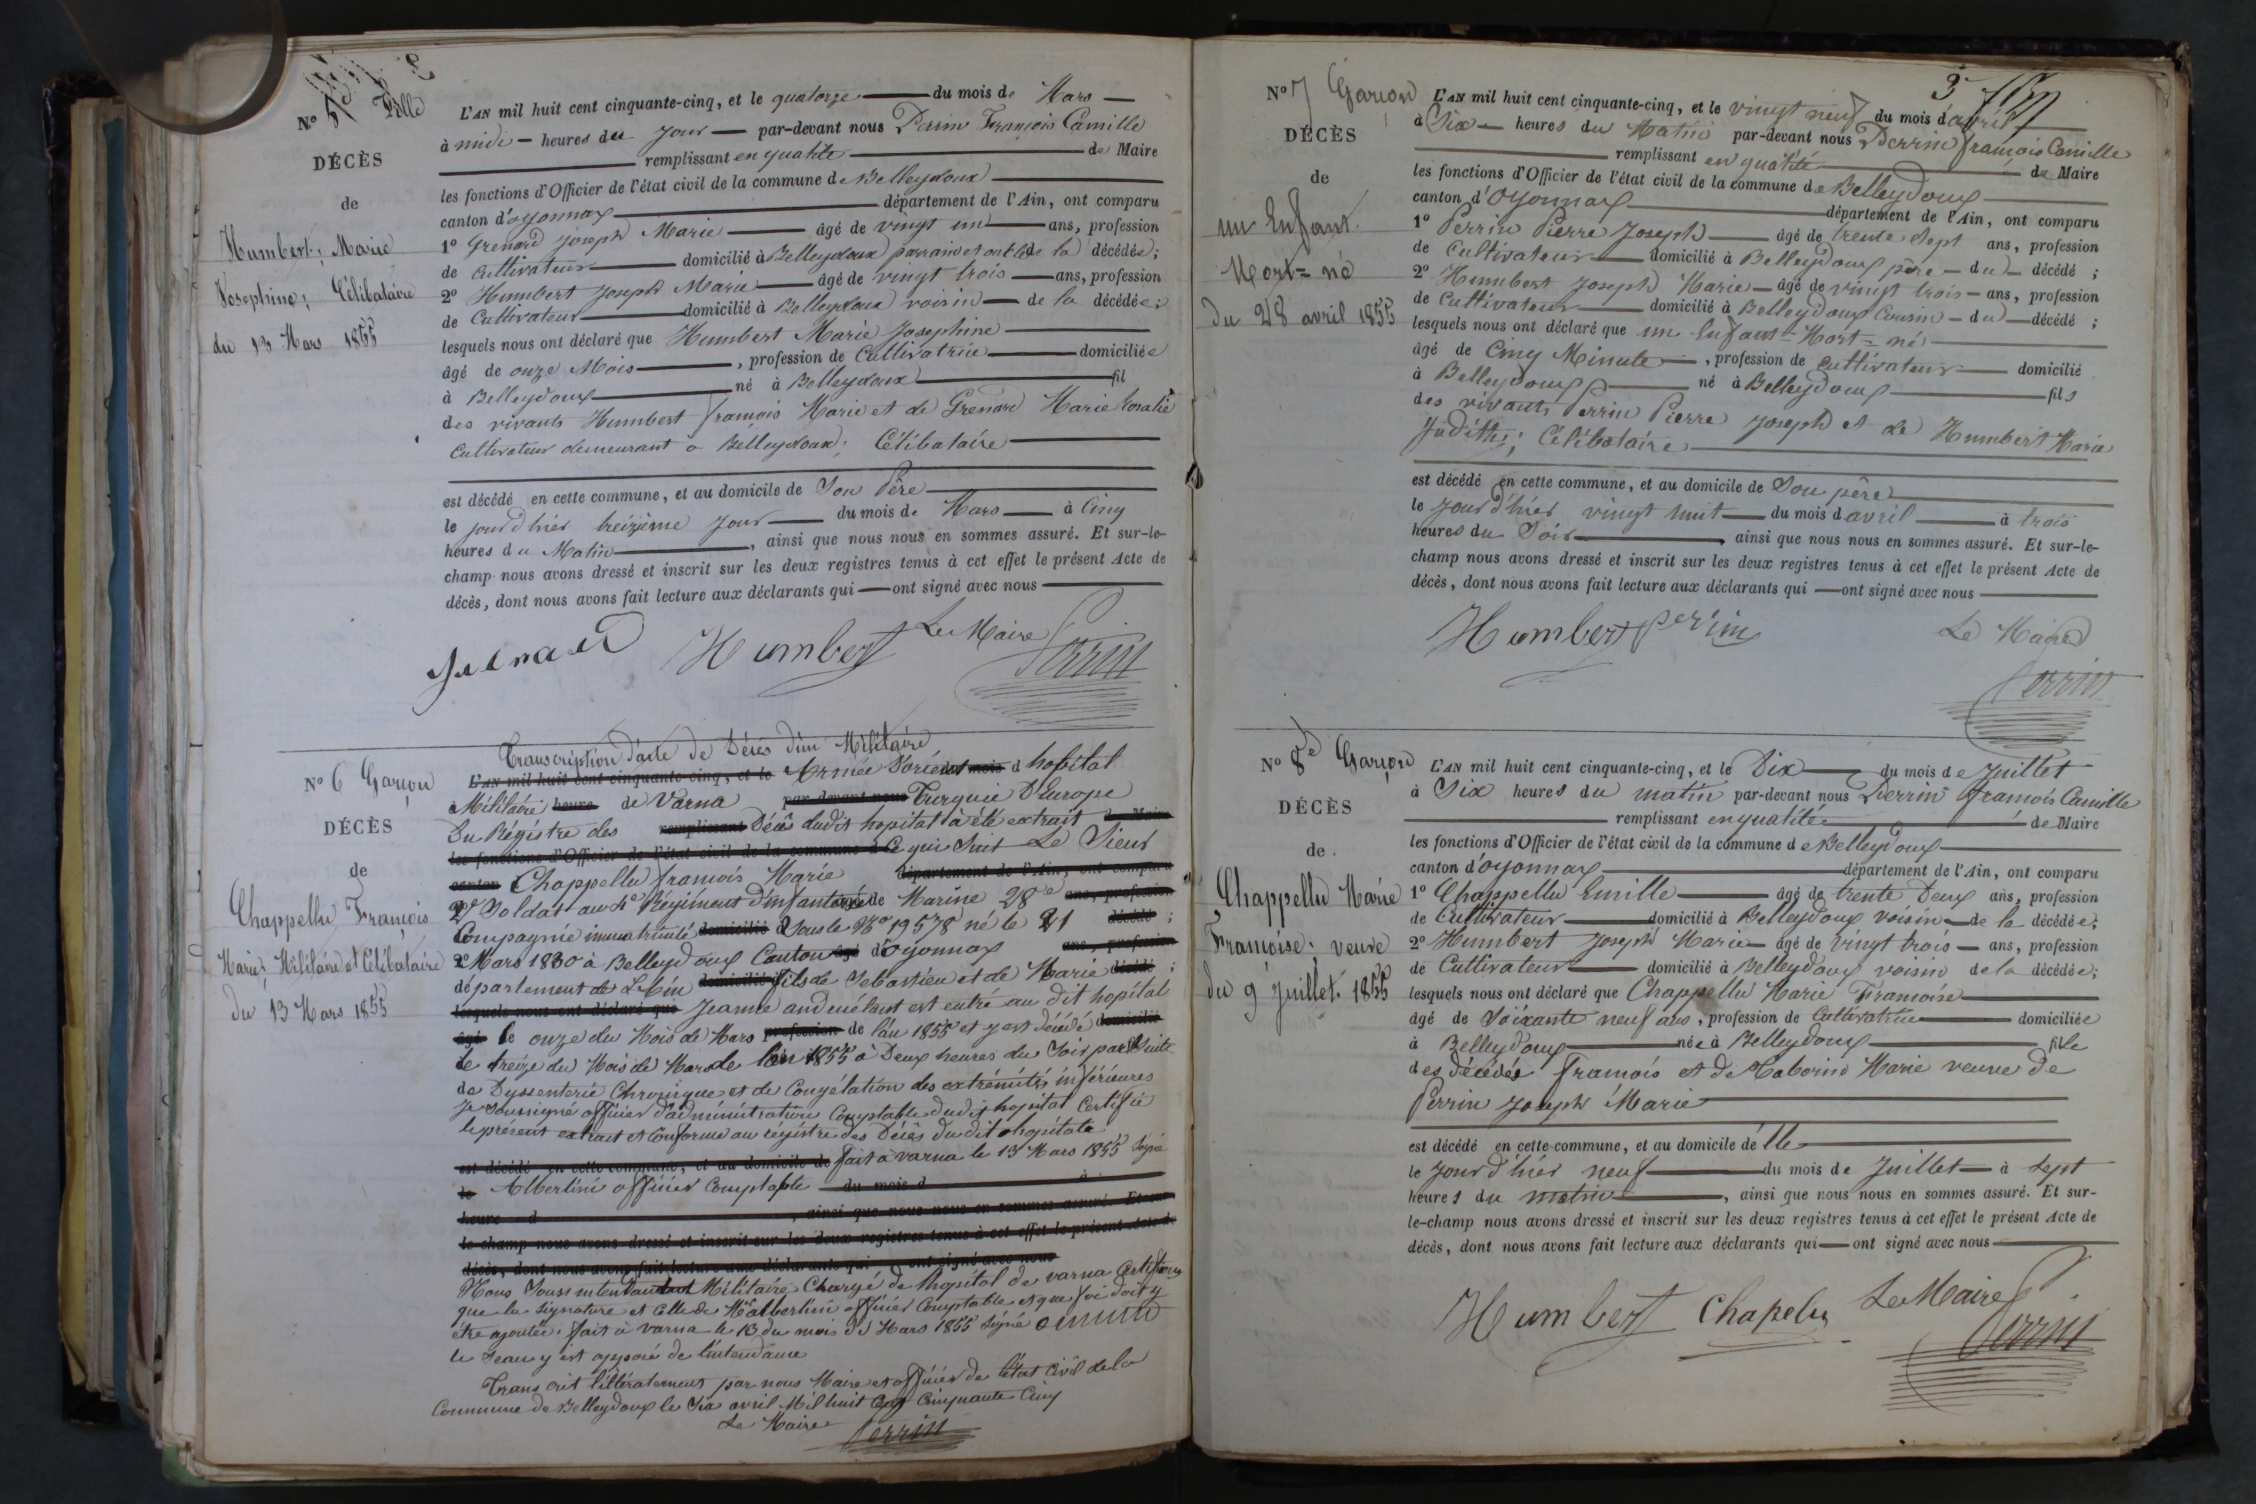 N° 5e Fille
DÉCÈS
de
Humbert, Marie
Josephine; Célibataire
du 13 Mars 1855
L'AN mil huit cent cinquante-cinq, et le quatorze du mois de Mars
à midi heures du jour par-devant nous Perrin François Camille
remplissant en qualité de Maire
les fonctions d'Officier de l'état civil de la commune de Belleydoux
canton d'oyonnax département de l'Ain, ont comparu
1° Grenard joseph Marie âgé de vingt un ans, profession
de Cultivateur domicilié à Belleydoux parrain et oncle de la décédée;
2° Humbert Joseph Marie âgé de vingt trois ans, profession
de Cultivateur domicilié à Belleydoux voisin de la décédée;
lesquels nous ont déclaré que Humbert Marie Josephine
âgé de onze Mois, profession de Cultivatrice domiciliée
à Belleydoux né à Belleydoux fil
des vivants Humbert françois Marie et de Grenard Marie Rosalie
Cultivateur demeurant à Belleydoux; Célibataire
est décédé en cette commune, et au domicile de Son Père
le jour d'hier treizième jour du mois de Mars à Cinq
heures du Matin, ainsi que nous nous en sommes assuré. Et sur-le-
champ nous avons dressé et inscrit sur les deux registres tenus à cet effet le présent Acte de
décès, dont nous avons fait lecture aux déclarants qui ont signé avec nous
Humbert Le Maire Perrin
N° 6 Garçon
DÉCÈS
de
Chappellu François
Marie; Militaire et Célibataire
du 13 Mars 1855
Transcription d'acte de Décès d'un Militaire
L'AN mil huit cent cinquante-cinq, et le Armée d'orient mois d hopital
à Militaire heure de Varna par-devant nous Turquie D'Europe
Du Régistre des remplissant Décès dudit hopital à été extrait de Maire
les fonctions d'Officier de l'état civil de la commune d Ce qui Suit Le Sieur
canton Chappellu françois Marie département de l'Ain, ont comparu
Soldat au 4e Régiment d'infanterie de Marine 28e ans, profession
Compagnie immatriculé domicilié Sous le No 19578 né le 21 décédé;
2° Mars 1830 à Belleydoux Canton âgé d'oyonnax ans, profession
département de L'ain domicilié fils de Sebastien et de Marie décédé;
lesquels nous ont déclaré que Jeanne and mélant est entré au dit hopital
âgé le onze du Mois de Mars profession de l'an 1855 et y est décédé domicilié
le treize du Mois de Mars de l'an 1855 à Deux heures du Soir par Suite
de Dyssenterie Chronique et de Congélation des extrémités inférieures
Je soussigné officier d'administration Comptable dudit hopital Certifie
le présent extrait et conforme au régistre des Décès dudit hopitale
est décédé en cette commune, et au domicile de fait à varna le 13 Mars 1855 Signé
le Albertini officier Comptable du mois d à
heure d, ainsi que nous nous en sommes assuré. Et sur-
le-champ nous avons dressé et inscrit sur les deux registres tenus à cet effet le présent Acte de
décès, dont nous avons fait lecture aux déclarants qui ont signé avec nous
Nous Sous intendant Militaire Chargé de l'hopital de varna Certifions
que la signature est celle de Mr albertini officier Comptable et que foi doit y
être ajoutée. fait à varna le 13 du mois de Mars 1855 Signé
le Seau y est apposé de l'intendance
Transcrit littéralement par nous Maire et officier de l'état Civil de la
Commune de Belleydoux le Six avril Mil huit Cent Cinquante Cinq
Le Maire Perrin
3
N° 7 Garçon
DÉCÈS
de
un Enfant
Mort=né
du 28 avril 1855
L'AN mil huit cent cinquante-cinq, et le vingt neuf du mois d'avril
à Six heures du Matin par-devant nous Perrin françois Camille
remplissant en qualité de Maire
les fonctions d'Officier de l'état civil de la commune de Belleydoux
canton d'oyonnax département de l'Ain, ont comparu
1° Perrin Pierre Joseph âgé de trente Sept ans, profession
de Cultivateur domicilié à Belleydoux père du décédé;
2° Humbert Joseph Marie âgé de vingt trois ans, profession
de Cultivateur domicilié à Belleydoux Cousin du décédé;
lesquels nous ont déclaré que un Enfant=Mort=né
âgé de Cinq Minute, profession de Cultivateur domicilié
à Belleydoux né à Belleydoux fils
des vivants Perrin Pierre Joseph et de Humbert Marie
Judith; Célibataire
est décédé en cette commune, et au domicile de Son père
le jour d'hier vingt huit du mois d avril à trois
heures du Soir ainsi que nous nous en sommes assuré. Et sur-le-
champ nous avons dressé et inscrit sur les deux registres tenus à cet effet le présent Acte de
décès, dont nous avons fait lecture aux déclarants qui ont signé avec nous
Humbert Perrin Le Maire
Perrin
N° 8e Garçon
DÉCÈS
de
Chappellu Marie
Françoise; veuve
du 9 Juillet 1855
L'AN mil huit cent cinquante-cinq, et le Dix du mois de Juillet
à Six heures du matin par-devant nous Perrin françois Camille
remplissant en qualitée de Maire
les fonctions d'Officier de l'état civil de la commune de Belleydoux
canton d'oyonnax département de l'Ain, ont comparu
1° Chappellu Emille âgé de trente Deux ans, profession
de Cultivateur domicilié à Belleydoux voisin de la décédée;
2° Humbert Joseph Marie âgé de vingt trois ans, profession
de Cultivateur domicilié à Belleydoux voisin de la décédée;
lesquels nous ont déclaré que Chappellu Marie Françoise
âgé de Soixante neuf ans, profession de Cultivatrice domiciliée
à Belleydoux née à Belleydoux fille
des décédés françois et de Tabourin Marie veuve de
Perrin Joseph Marie
est décédé en cette commune, et au domicile de Elle
le Jour d'hier neuf du mois de Juillet à Sept
heures du matin, ainsi que nous nous en sommes assuré. Et sur-
le-champ nous avons dressé et inscrit sur les deux registres tenus à cet effet le présent Acte de
décès, dont nous avons fait lecture aux déclarants qui ont signé avec nous
Humbert Chapelu Le Maire
Perrin